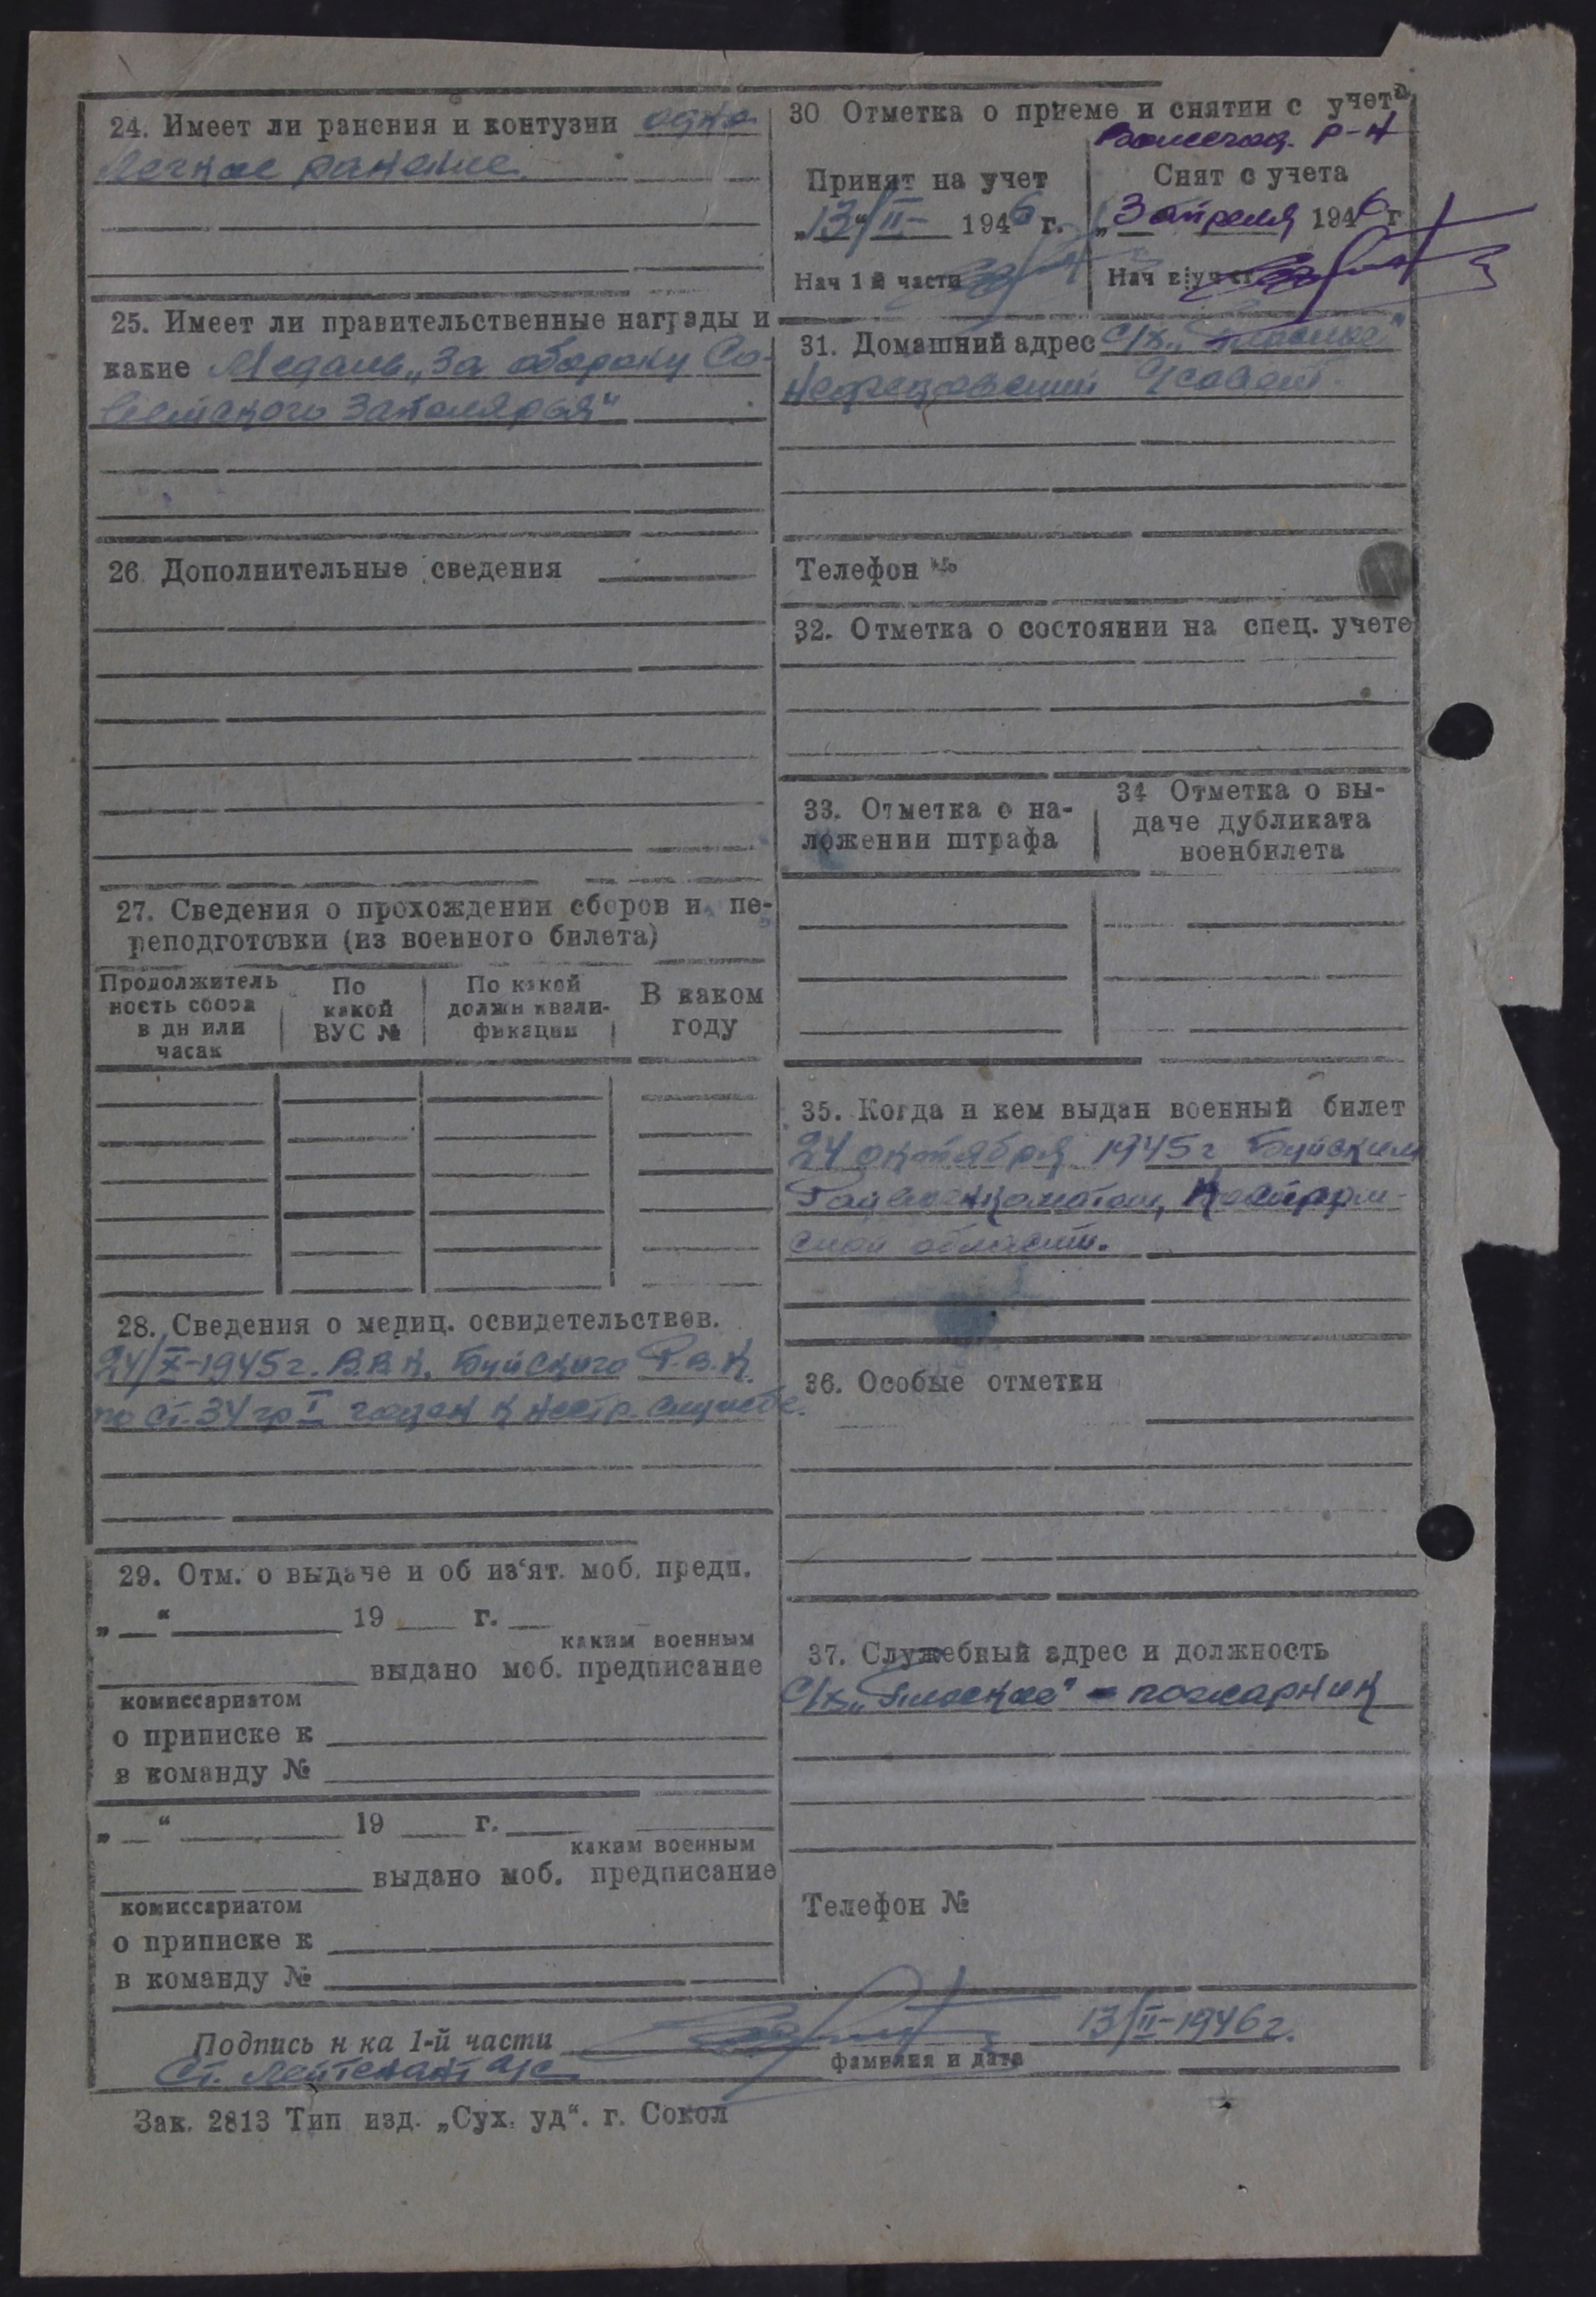 24. Имеет ли ранения и контузии одно
легкое ранение.
25. Имеет ли правительственные награды и
какие Медаль „За оборону Со-
ветского Заполярья“
26 Дополнительные сведения
27. Сведения о прохождении сборов и пе-
реподготовки (из военного билета)
Продолжитель
ность сбора
в дн или
часах
По
какой
ВУС №
По какой
должн квали-
фикации
В каком
году
28. Сведения о медиц. освидетельствов.
24/X-1945г. В.В.К. Буйского Р.В.К.
по ст. 34 гр I годен к нестр. службе.
29. Отм. о выдаче и об из‘ят. моб. предп.
„ “ 19 г.
каким военным
выдано моб. предписание
комиссариатом
о приписке к
в команду №
„ “ 19 г.
каким военным
выдано моб. предписание
комиссариатом
о приписке к
в команду №
30 Отметка о приеме и снятии с учета
р-н
Принят на учет
„13“/II- 1946 г.
Нач 1 й части
Снят с учета
„3 апреля 1946 г
Нач
31. Домашний адрес с/х.
с/совет.
Телефон №
32. Отметка о состоянии на спец. учете
33. Отметка о на-
ложении штрафа
34 Отметка о вы-
даче дубликата
военбилета
35. Когда и кем выдан военный билет
24 октября 1945г Буйским
Райвоенкоматом, Костром-
ской области.
36. Особые отметки
37. Служебный адрес и должность
С/х - пожарник
Телефон №
Подпись н ка 1-й части
13/II-1946г.
Ст. лейтенант а/с
фамилия и дата
Зак. 2813 Тип изд. „Сух. уд“. г. Сокол